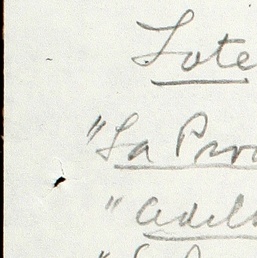 Lote
"La Pro
"Adel